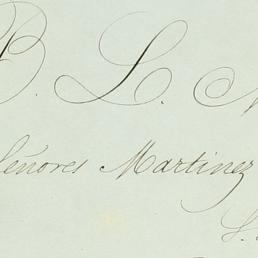 B. L. M
Señores Martinez
S.